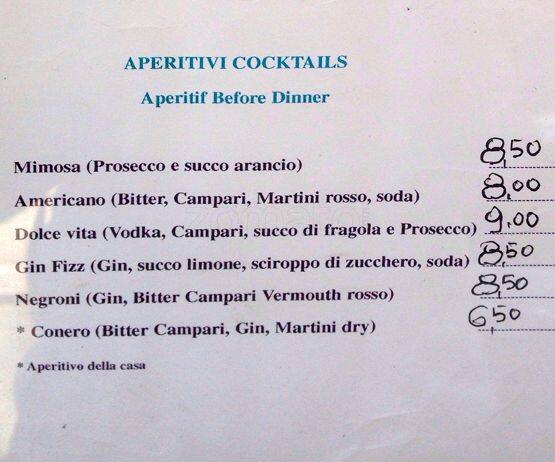 APERITIVI COCKTAILS
Aperitif Before Dinner
Mimosa (Prosecco e succo arancio) 8,50
Americano (Bitter, Campari, Martini rosso, soda) 8,00
Dolce vita (Vodka, Campari, succo di fragola e Prosecco) 9,00
Gin Fizz (Gin, succo limone, sciroppo di zucchero, soda) 8,50
Negroni (Gin, Bitter Campari Vermouth rosso) 8,50
* Conero (Bitter Campari, Gin, Martini dry) 6,50
* Aperitivo della casa